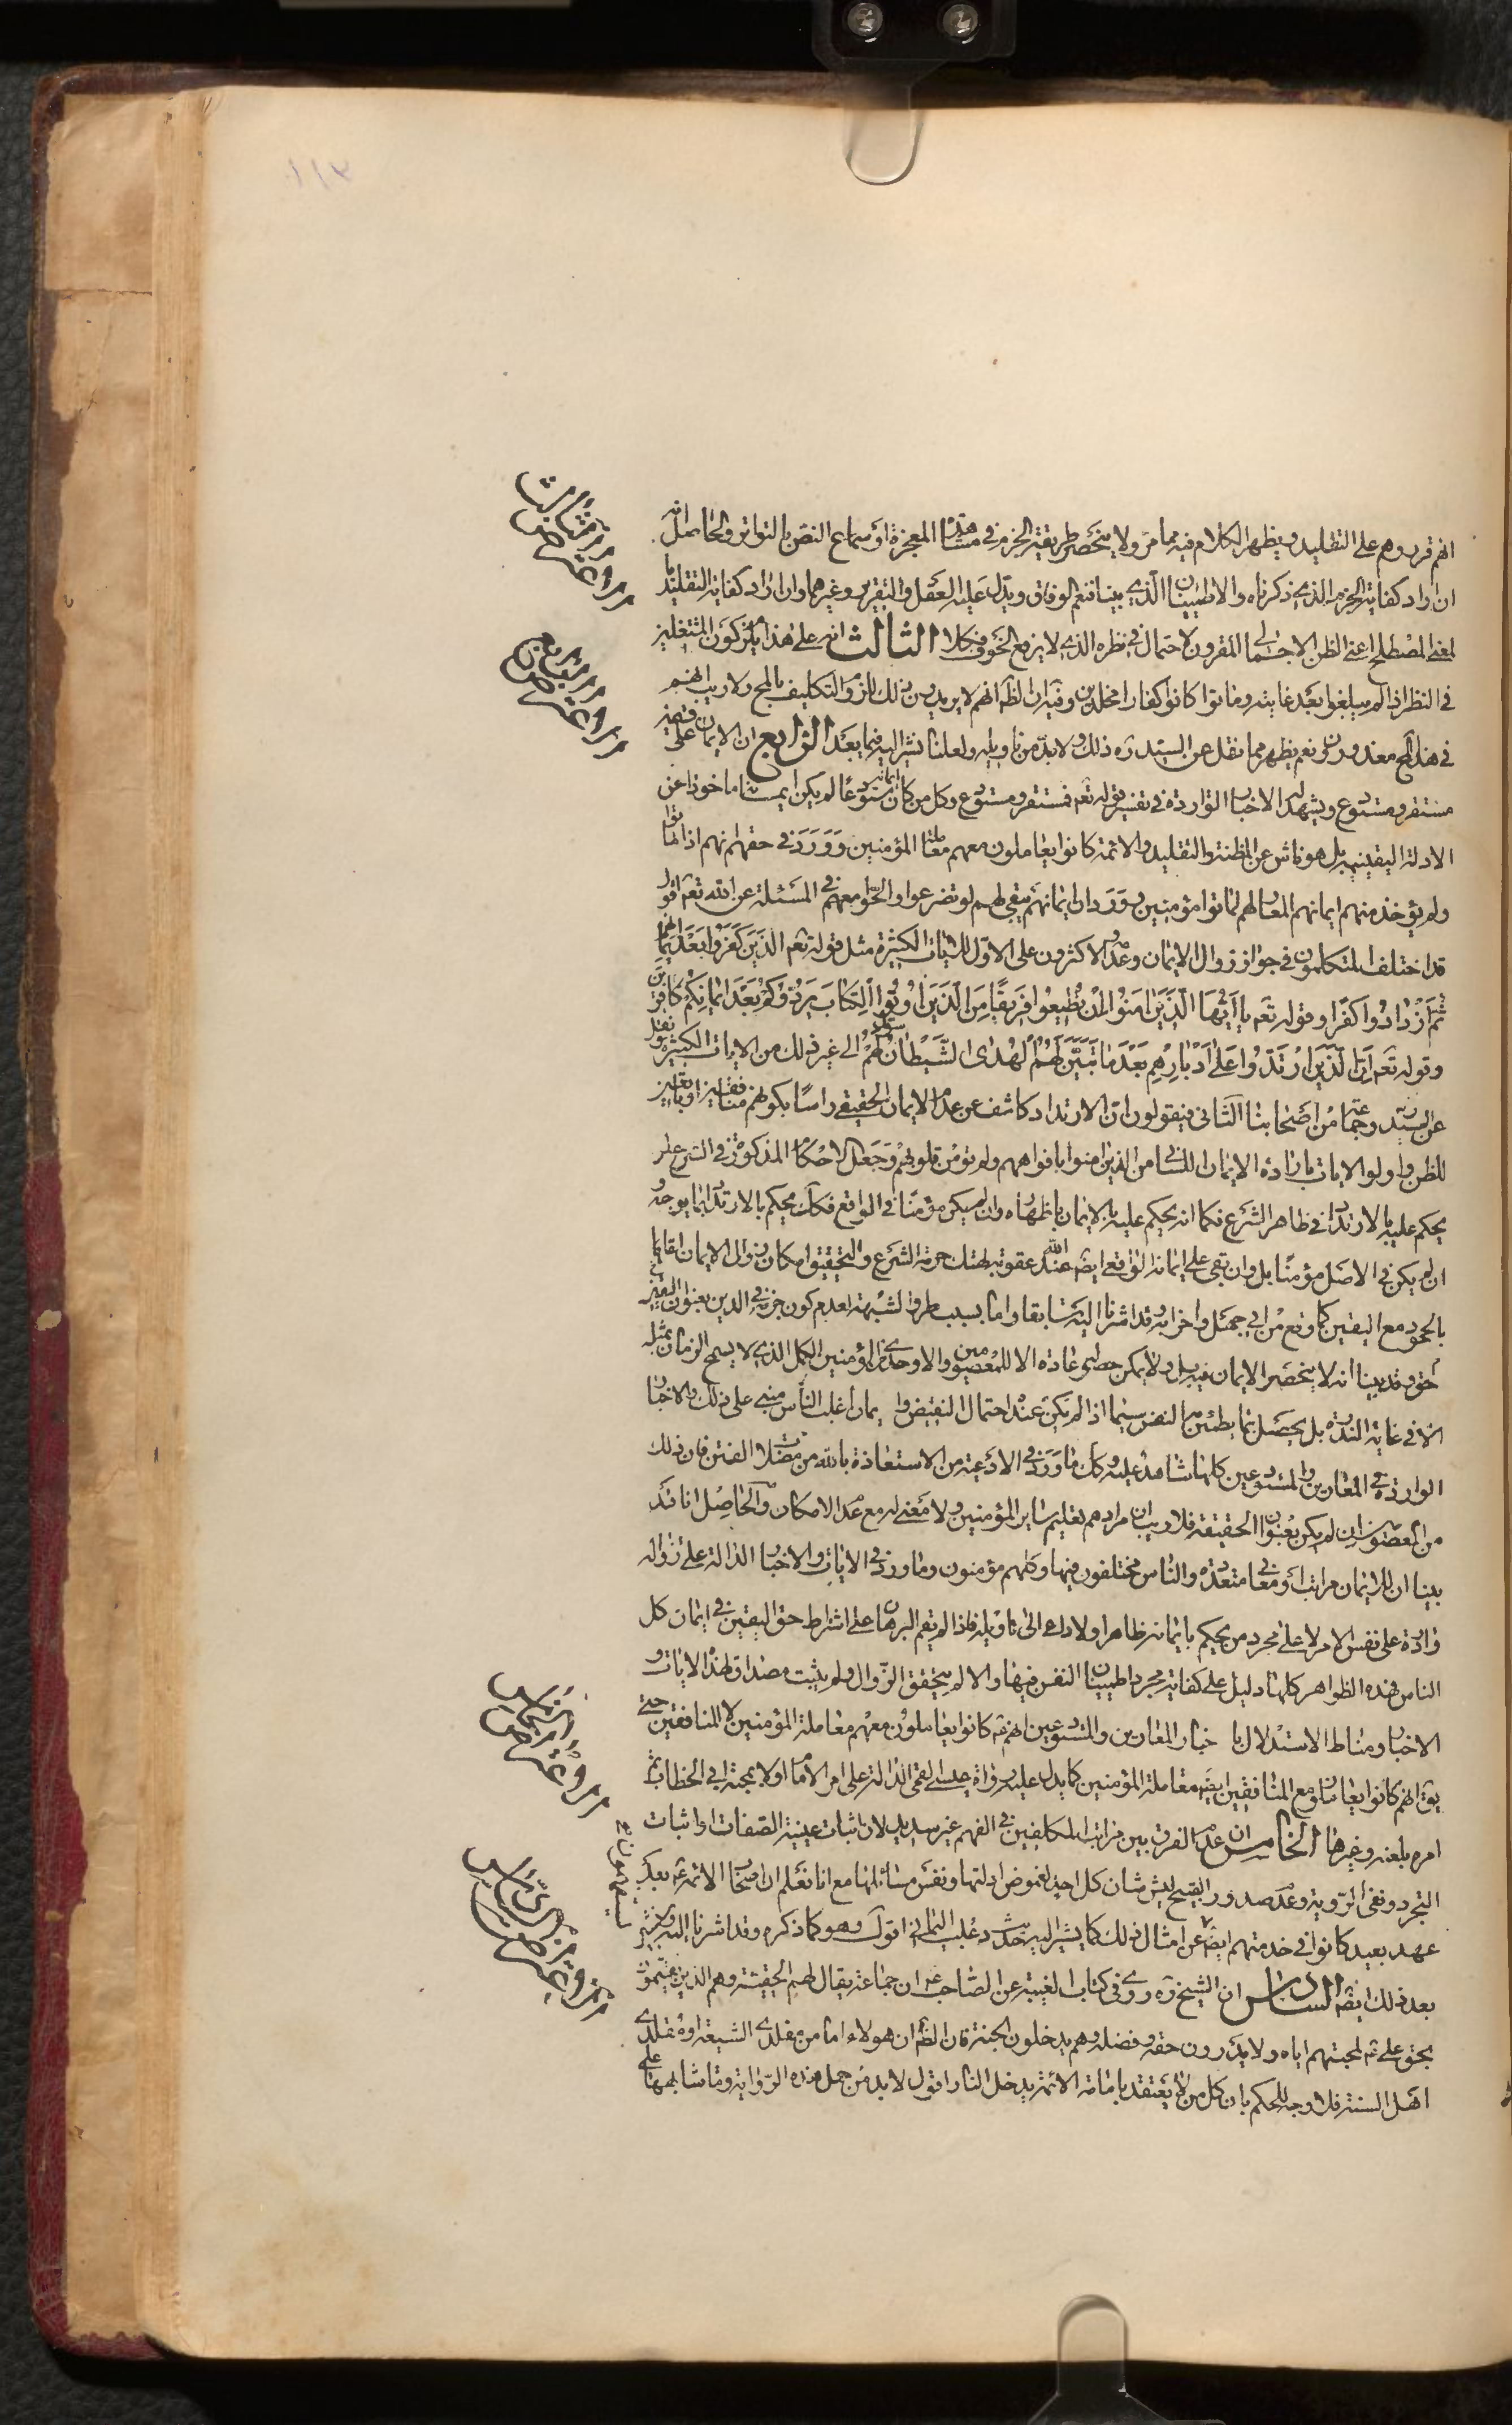 انهم قرروهم على التقليد ويظهر الكلام فيه مما مر ولا ينحصر طريقة الجزم في مشاهدة المعجزة او سماع النص بالتواتر والحاصل انه
ان اراد كفاية الجزم الذي ذكرناه والاطمينان الذي بينا فنعم الوفاق ويدل عليه العقل والتقرير وغيرهما وان اراد كفاية التقليد با
لمعنى المصطلح اعني الظن الاجمالي المقرون لاحتمال في نظره الذي لا يرفع الخوف فكلا الثالث انه على هذا يلزم كون المشتغلين
في النظر اذا لم يبلغوا بعد غايته وماتوا كانوا كفارا مخلدين وفيه ان الظ انهم لا يريدون ذلك للزوم التكليف بالمح ولا ريب انهم
في هذا الحج معذورون نعم يظهر مما نقل عن السيد ره ذلك ولا بد من تاويله ولعلنا نشير اليه فيما بعد الرابع ان الايمان على قسمين
مستقر ومستودع ويشهد له الاخبار الواردة في تفسير قوله تعه فمستقر ومستودع وكل من كان ايمانه مستودعا لم يكن ايمانه ماخوذا عن
الادلة اليقينيه بل هو ناش عن المظنة والتقليد والائمة كانوا يعاملون معهم معاملة المؤمنين وورد في حقهم انهم اذا ماتوا
ولم يؤخذ منهم ايمانهم المعار لهم لماتوا مؤمنين وورد ان ايمانهم يبقى لهم لو تضرعوا والحوا معهم في المسئلة عن الله تعه اقول
قد اختلف المتكلمون في جواز زوال الايمان وعدمه والاكثرون على الاول للايات الكثيرة مثل قوله تعه الذين كفروا بعد ايمانهم
ثم ازدادوا كفرا وقوله تعه يا ايها الذين امنوا ان تطيعوا فريقا من الذين اوتوا الكتاب يردوكم بعد ايمانكم كافرين
وقوله تعه ان الذين ارتدوا على ادبارهم بعد ما تبين لهم الهدى الشيطان سول لهم الى غير ذلك من الايات الكثيرة ونقل
عن السيد ره وجماعة من اصحابنا الثاني فيقولون ان الارتداد كاشف عن عدم الايمان الحقيقي راسا بكونهم منافقين او تابعين
للظن واولوا الايات بارادة الايمان اللساني من الذين امنوا بافواههم ولم تؤمن قلوبهم وجعل الاحكام المذكورة في الشرع على من
يحكم عليه بالارتداد في ظاهر الشرع فكما انه يحكم عليه بالايمان باظهاره وان لم يكن مؤمنا في الواقع فكذلك يحكم بالارتداد بما يوجبه و
ان لم يكن في الاصل مؤمنا بل وان بقى على ايمانه الواقعي ايضا عند الله عقوبة لهتك حرمة الشرع والتحقيق امكان زوال الايمان اما
بالجحود مع اليقين كما وقع من ابي جهل واضرابه وقد اشرنا اليه سابقا واما بسبب طرو الشبهة لعدم كون جزمه في الدين بعنوان اليقين
الحق وقد بينا انه لا ينحصر الايمان فيه بل ولا يمكن حصوله عادة الا للمعصومين والاوحدي من المؤمنين الكمل الذي لا يسمح الزمان بمثله
الا في غاية الندرة بل يحصل بما يطمئن به النفس سيما اذا لم يكن عنده احتمال النقيض وايمان اغلب الناس مبني على ذلك والاخبار
الواردة في المعارين والمستودعين كلها شاهدة عليه وكك ما ورد في الادعية من الاستعاذة بالله من مضلات الفتن فان ذلك
من المعصوم وان لم يكن بعنوان الحقيقة فلا ريب ان مرادهم تعليم سائر المؤمنين ولا معنى له مع عدم الامكان والحاصل انا قد
بينا ان للايمان مراتب او معاني متعددة والناس مختلفون فيها وكلهم مؤمنون وما ورد في الايات والاخبار الدالة على زواله
واردة على نفس الامر لا على مجرد من يحكم بايمانه ظاهرا ولا داعي الى تاويله فاذا لم يقم البرهان على اشتراط حق اليقين في ايمان كل
الناس فهذه الظواهر كلها دليل على كفاية مجرد اطمينان النفس فيها والا لم يتحقق الزوال ولم يثبت مصداق لهذا الايات و
الاخبار ومناط الاستدلال باخبار المعارين والمستودعين انهم ع كانوا يعاملون معهم معاملة المؤمنين لا المنافقين حتى
يق انهم كانوا يعاملون مع المنافقين ايضا معاملة المؤمنين كما يدل عليه رواية عيسى القمي الدالة على امر الامام اولا بمحبة ابي الخطاب ثم
امره بلعنه وغيرها الخامس ان عدم الفرق بين مراتب المكلفين في الفهم غير سديد لان اثبات عينية الصفات او اثبات
التجرد ونفي الرؤية وعدم صدور القبيح ليس شان كل احد لغموض ادلتها ونفس مسائلها مع انا نعلم ان اصحاب الائمة ع بعد
عهد بعيد كانوا في خدمتهم ايضا عن امثال ذلك كما يشير اليه حديث دعلب اليماني اقول وهو كما ذكره وقد اشرنا اليه ونشير
بعد ذلك ايضا السادس ان الشيخ ره روى في كتاب الغيبة عن الصاحب ع ان جماعة يقال لهم الحقية وهم الذين يقسمون
بحق علي ع لمحبتهم اياه ولا يدرون حقه وفضله وهم يدخلون الجنة فان الظ ان هولاء اما من مقلدي الشيعة او مقلدي
اهل السنة فلا وجه للحكم بان كل من لا يعتقد بامامة الائمة يدخل النار اقول لا بد من حمل هذه الرواية وما شابهها على